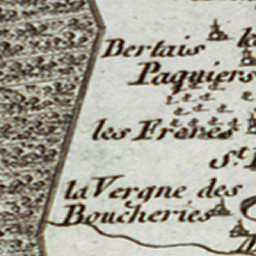 Bertais
Paquiers
les Frenes
St
la Vergne des
Boucheries